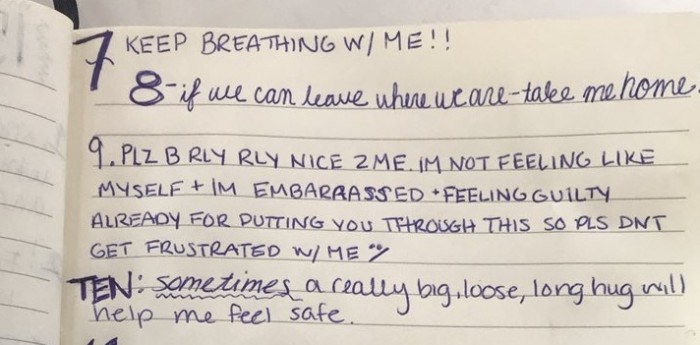 7 KEEP BREATHING W/ ME!!
8-if we can leave where we are-take me home.
9. PLZ B RLY RLY NICE 2 ME. IM NOT FEELING LIKE
MYSELF + IM EMBARRASSED + FEELING GUILTY
ALREADY FOR PUTTING YOU THROUGH THIS SO PLS DNT
GET FRUSTRATED W/ ME
TEN: sometimes a really big, loose, long hug will
help me feel safe.